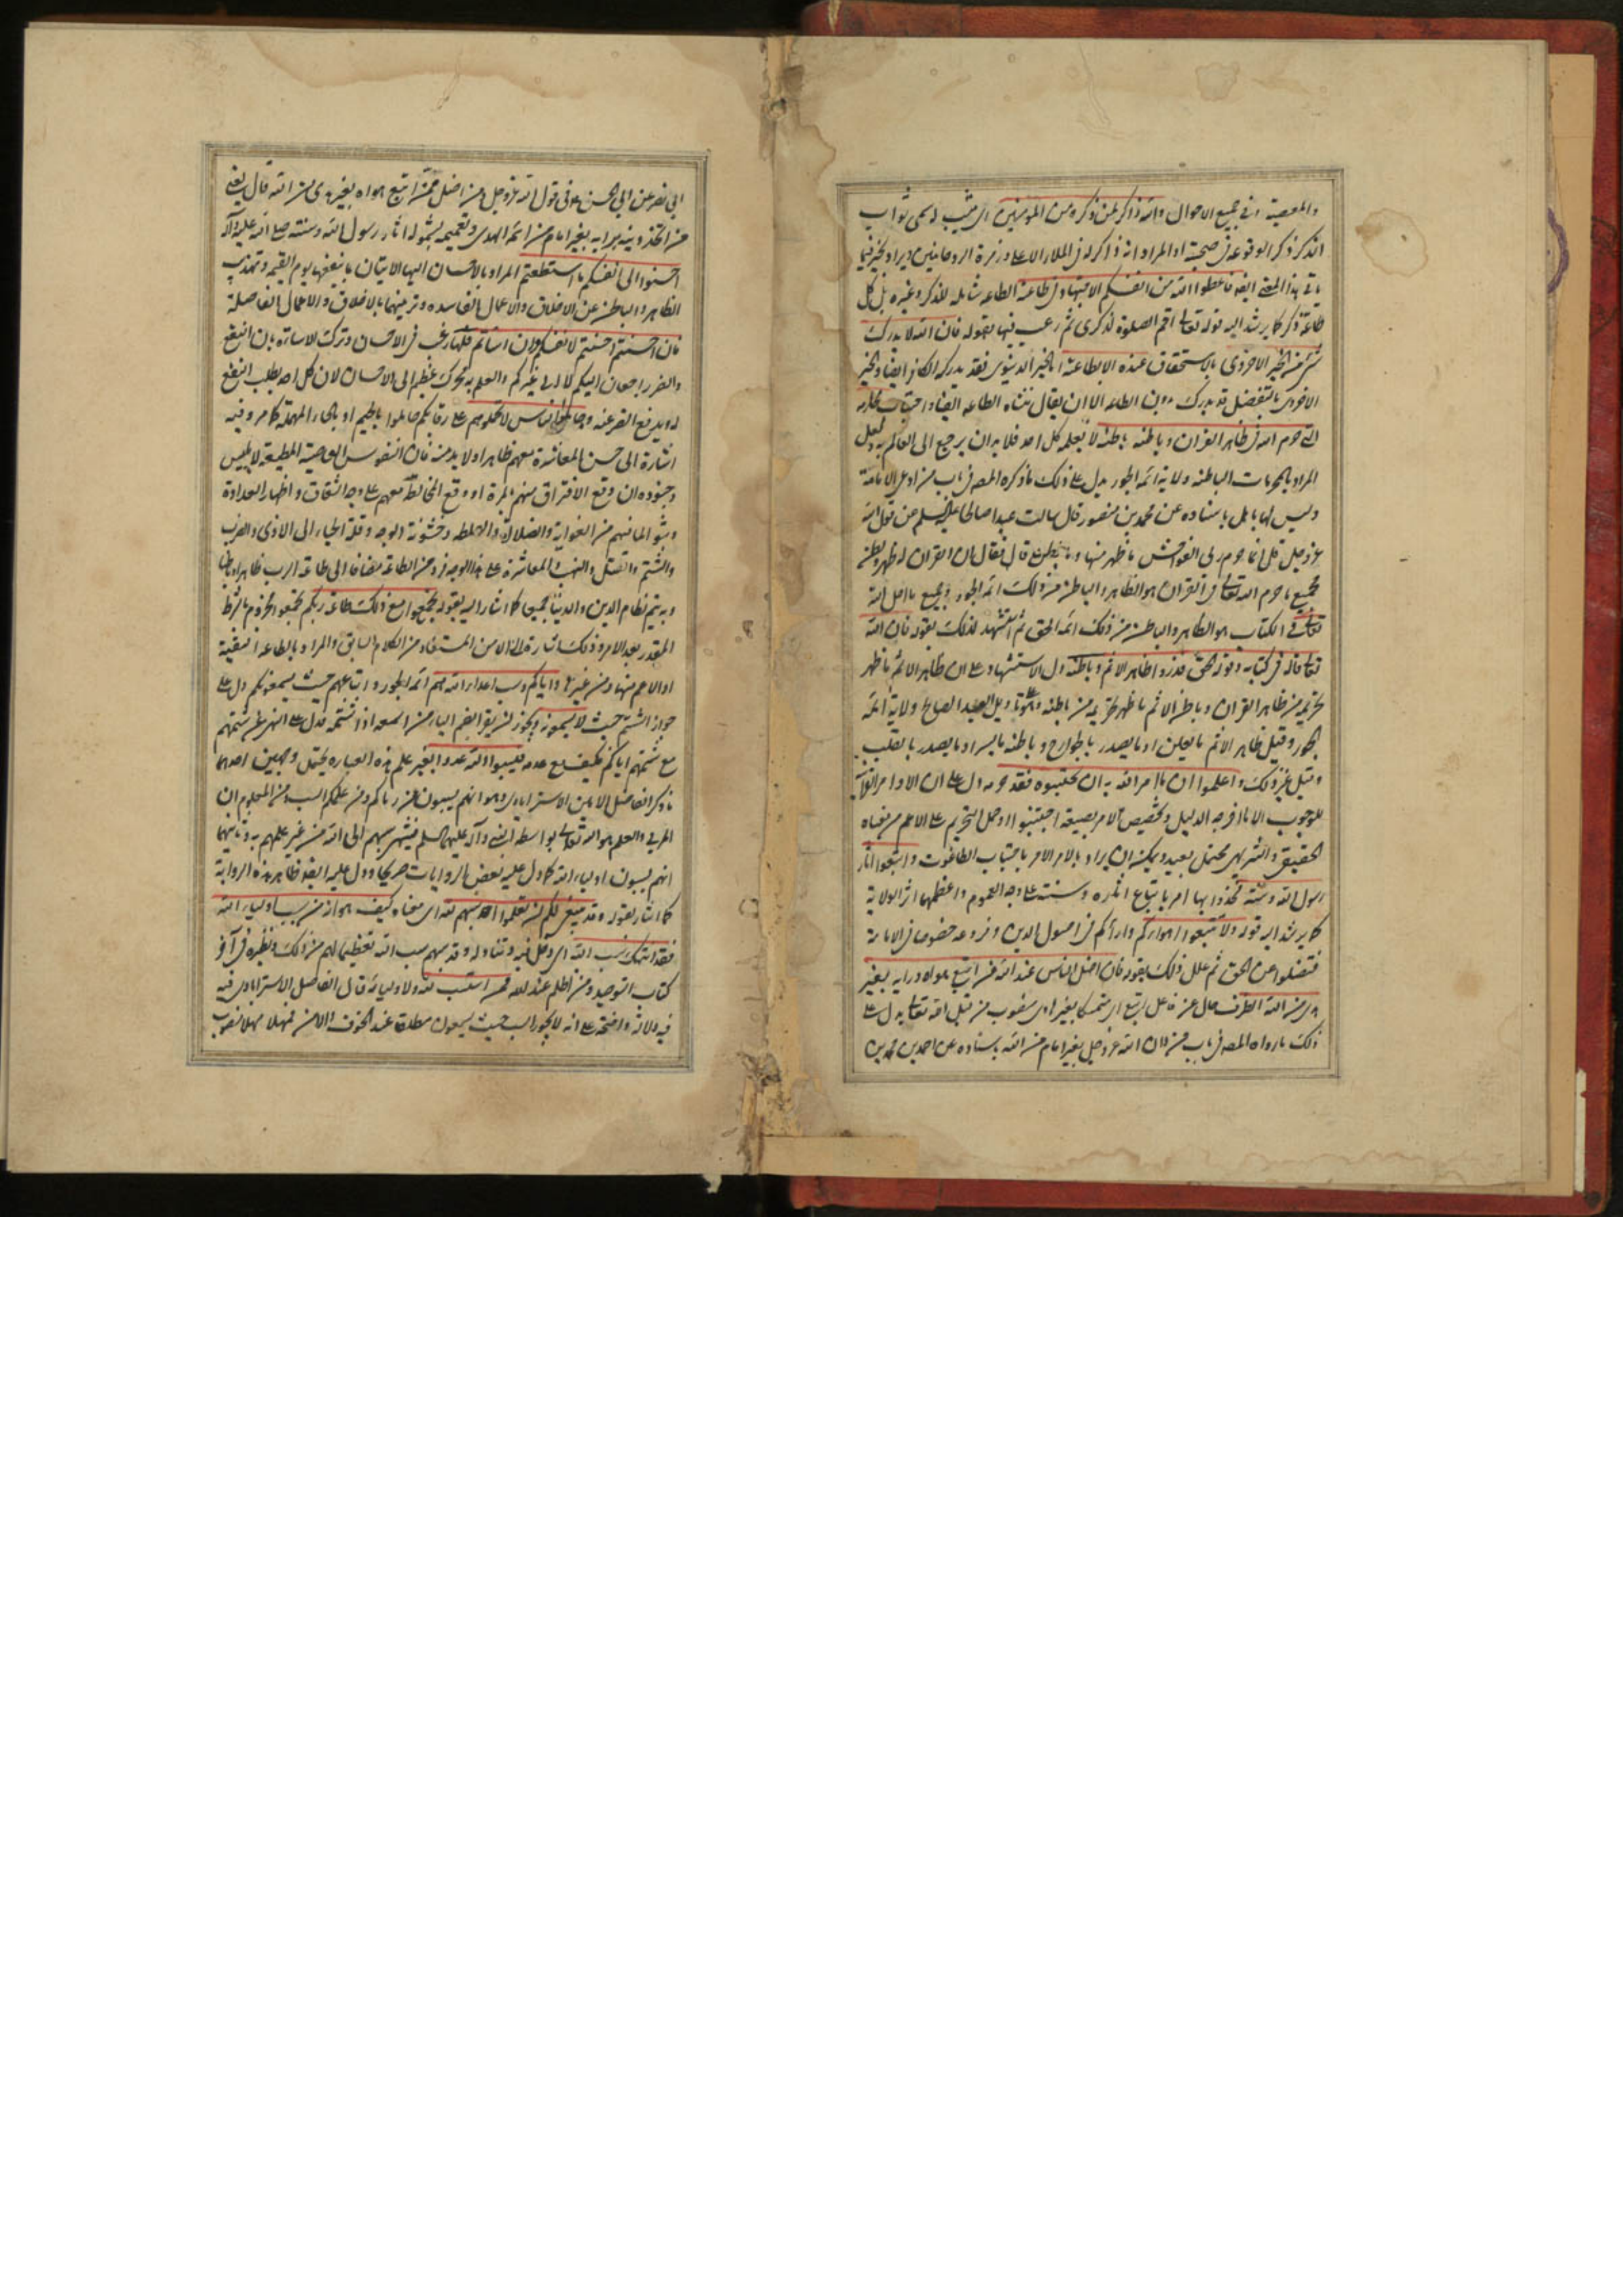 والمعصية اى فى جميع الاحوال والله ذاكر لمن ذكره من المؤمنين اى مثيب له سمى ثواب
الذكر ذكرا لوقوعه فى صحبته او المراد انه ذاكر له فى الملاء الاعلى وزمرة الروحانيين ويراد بخير فيما
ياتى هذا المعنى ايضا فاعطوا الله من انفسكم الاجتهاد فى طاعته الطاعة شاملة للذكر وغيره بل كل
طاعة ذكر كما يرشد اليه قوله تعالى اقم الصلوة لذكرى ثم رغب فيها بقوله فان الله لا يدرك
شىء من الخير الاخروى بالاستحقاق عنده الا بطاعته اما الخير الدنيوى فقد يدركه الكافر ايضا والخير
الاخروى بالتفضل قد يدرك بدون الطاعة الا ان يقال نشاه الطاعة ايضا واجتناب محارمه
التى حرم الله فى ظاهر القران وباطنه باطنه لا يعلمه كل احد فلا بد ان يرجع الى العالم به ولعل
المراد بالمحرمات الباطنة ولاية ائمة الجور يدل على ذلك ما ذكره المصه فى باب من ادعى الامامة
وليس لها باهل باسناده عن محمد بن منصور قال سالت عبدا صالحا عليه السلم عن قول الله
عز وجل قل انما حرم ربى الفواحش ما ظهر منها وما بطن قال فقال ان القران له ظهر وبطن
فجميع ما حرم الله تعالى فى القران هو الظاهر والباطن من ذلك ائمة الجور وجميع ما احل الله
تعالى فى الكتاب هو الظاهر والباطن من ذلك ائمة الحق ثم استشهد لذلك بقوله فان الله
تعالى قال فى كتابه وقوله الحق وذروا ظاهر الاثم وباطنه دل الاستشهاد على ان ظاهر الاثم ما ظهر
تحريمه من ظاهر القران وباطن الاثم ما ظهر تحريمه من باطنه وهو على تاويل العبد الصالح ولاية ائمة
الجور وقيل ظاهر الاثم ما يعلن او ما يصدر بالجوارح وباطنه ما يسر او ما يصدر بالقلب
وقيل غير ذلك واعلموا ان ما امر الله به ان تجتنبوه فقد حرمه دل على ان الاوامر القرآنية
للوجوب الا ما اخرجه الدليل وتخصيص الامر بصيغة اجتنبوا او حمل التحريم على الاعم من معناه
الحقيقى والتنزيهى محتمل بعيد ويمكن ان يراد بالامر الامر باجتناب الطاغوت واتبعوا اثار
رسول الله وسنته فخذوا بها امر باتباع اثاره وسنته على وجه العموم واعظمها اثر الولاية
كما يرشد اليه قوله ولا تتبعوا اهواءكم وارآءكم فى اصول الدين وفروعه خصوصا فى الامامة
فتضلوا عن الحق ثم علل ذلك بقوله فان اضل الناس عند الله من اتبع هواه ورايه بغير
هدى من الله الظرف حال عن فاعل اتبع اى متمسكا بغير هادى منصوب من قبل الله تعالى يدل على
ذلك ما رواه المصه فى باب من دان الله عز وجل بغير امام من الله باسناده عن احمد بن محمد بن
ابى نصر عن ابى الحسن ع فى قول الله عز وجل ومن اضل ممن اتبع هواه بغير هدى من الله قال يعنى
من اتخذ دينه برايه بغير امام من ائمة الهدى وتعميمه بشموله اثار رسول الله وسنته صلى الله عليه وآله
احسنوا الى انفسكم ما استطعتم المراد بالاحسان اليها الاتيان بما ينفعها يوم القيمة وتهذيب
الظاهر والباطن عن الاخلاق والاعمال الفاسدة وتزيينهما بالاخلاق والاعمال الفاضلة
فان احسنتم احسنتم لانفسكم وان اساتم فلها رغب فى الاحسان وترك الاساءة بان النفع
والضرر راجعان اليكم لا الى غيركم والعلم به محرك عظيم الى الاحسان لان كل احد يطلب النفع
له ويدفع الضر عنه وجاملوا الناس لا تحملوهم على رقابكم جاملوا بالجيم او بالحاء المهملة كما مر وفيه
اشارة الى حسن المعاشرة معهم ظاهرا ولا بد منه فان النفوس العاصية المطيعة لابليس
وجنوده ان وقع الافتراق منهم بالمرة او وقع المخالطة معهم على وجه الشقاق واظهار العداوة
وثبوا لما فيهم من الغواية والضلالة والغلظة وخشونة الوجه وقلة الحياء الى الاذى والضرب
والشتم والقتل والنهب المعاشرة على هذا الوجه فرد من الطاعة مضافا الى طاعة الرب ظاهرا وباطنا
وبه يتم نظام الدين والدنيا جميعا كما اشار اليه بقوله تجمعوا مع ذلك طاعة ربكم تجمعوا مجزوم بالشرط
المقدر بعد الامر وذلك اشارة الى الامن المستفاد من الكلام السابق والمراد بالطاعة التقية
او الاعم منها ومن غيرها واياكم وسب اعداء الله هم ائمة الجور واتباعهم حيث يسمعونكم دل على
جواز الشتم حيث لا يسمعون ويجوز ان يقرا بضم الياء من اسمعه اذا شتمه فدل على النهى عن شتمهم
مع شتمهم اياكم فكيف مع عدمه فيسبوا الله عدوا بغير علم هذه العبارة يحتمل وجهين احدهما
ما ذكر الفاضل الامين الاسترابادى وهو انهم يسبون من رباكم ومن علمكم السب ومن المعلوم ان
المربى والعلم هو الله تعالى بواسطة النبى وآله عليهم السلم فينتهى سبهم الى الله من غير علمهم به وثانيهما
انهم يسبون اولياء الله كما دل عليه بعض الروايات صريحا ودل عليه ايضا ظاهر هذه الرواية
كما اشار بقوله وقد ينبغى لكم ان تعلموا حد سبهم لله اى معناه كيف هو انه من سب اولياء الله
فقد انتهك سب الله اى دخل فيه وتناوله وقد سبهم سب الله تعظيما لهم من ذلك ونظيره فى آخر
كتاب التوحيد ومن اظلم عند الله ممن استسب لله ولاوليائه قال الفاضل الاسترابادى فيه
فيه دلالة واضحة على انه لا يجوز السب حيث يسمعون مطلقا عند الخوف والامن فمهلا مهلا منصوب